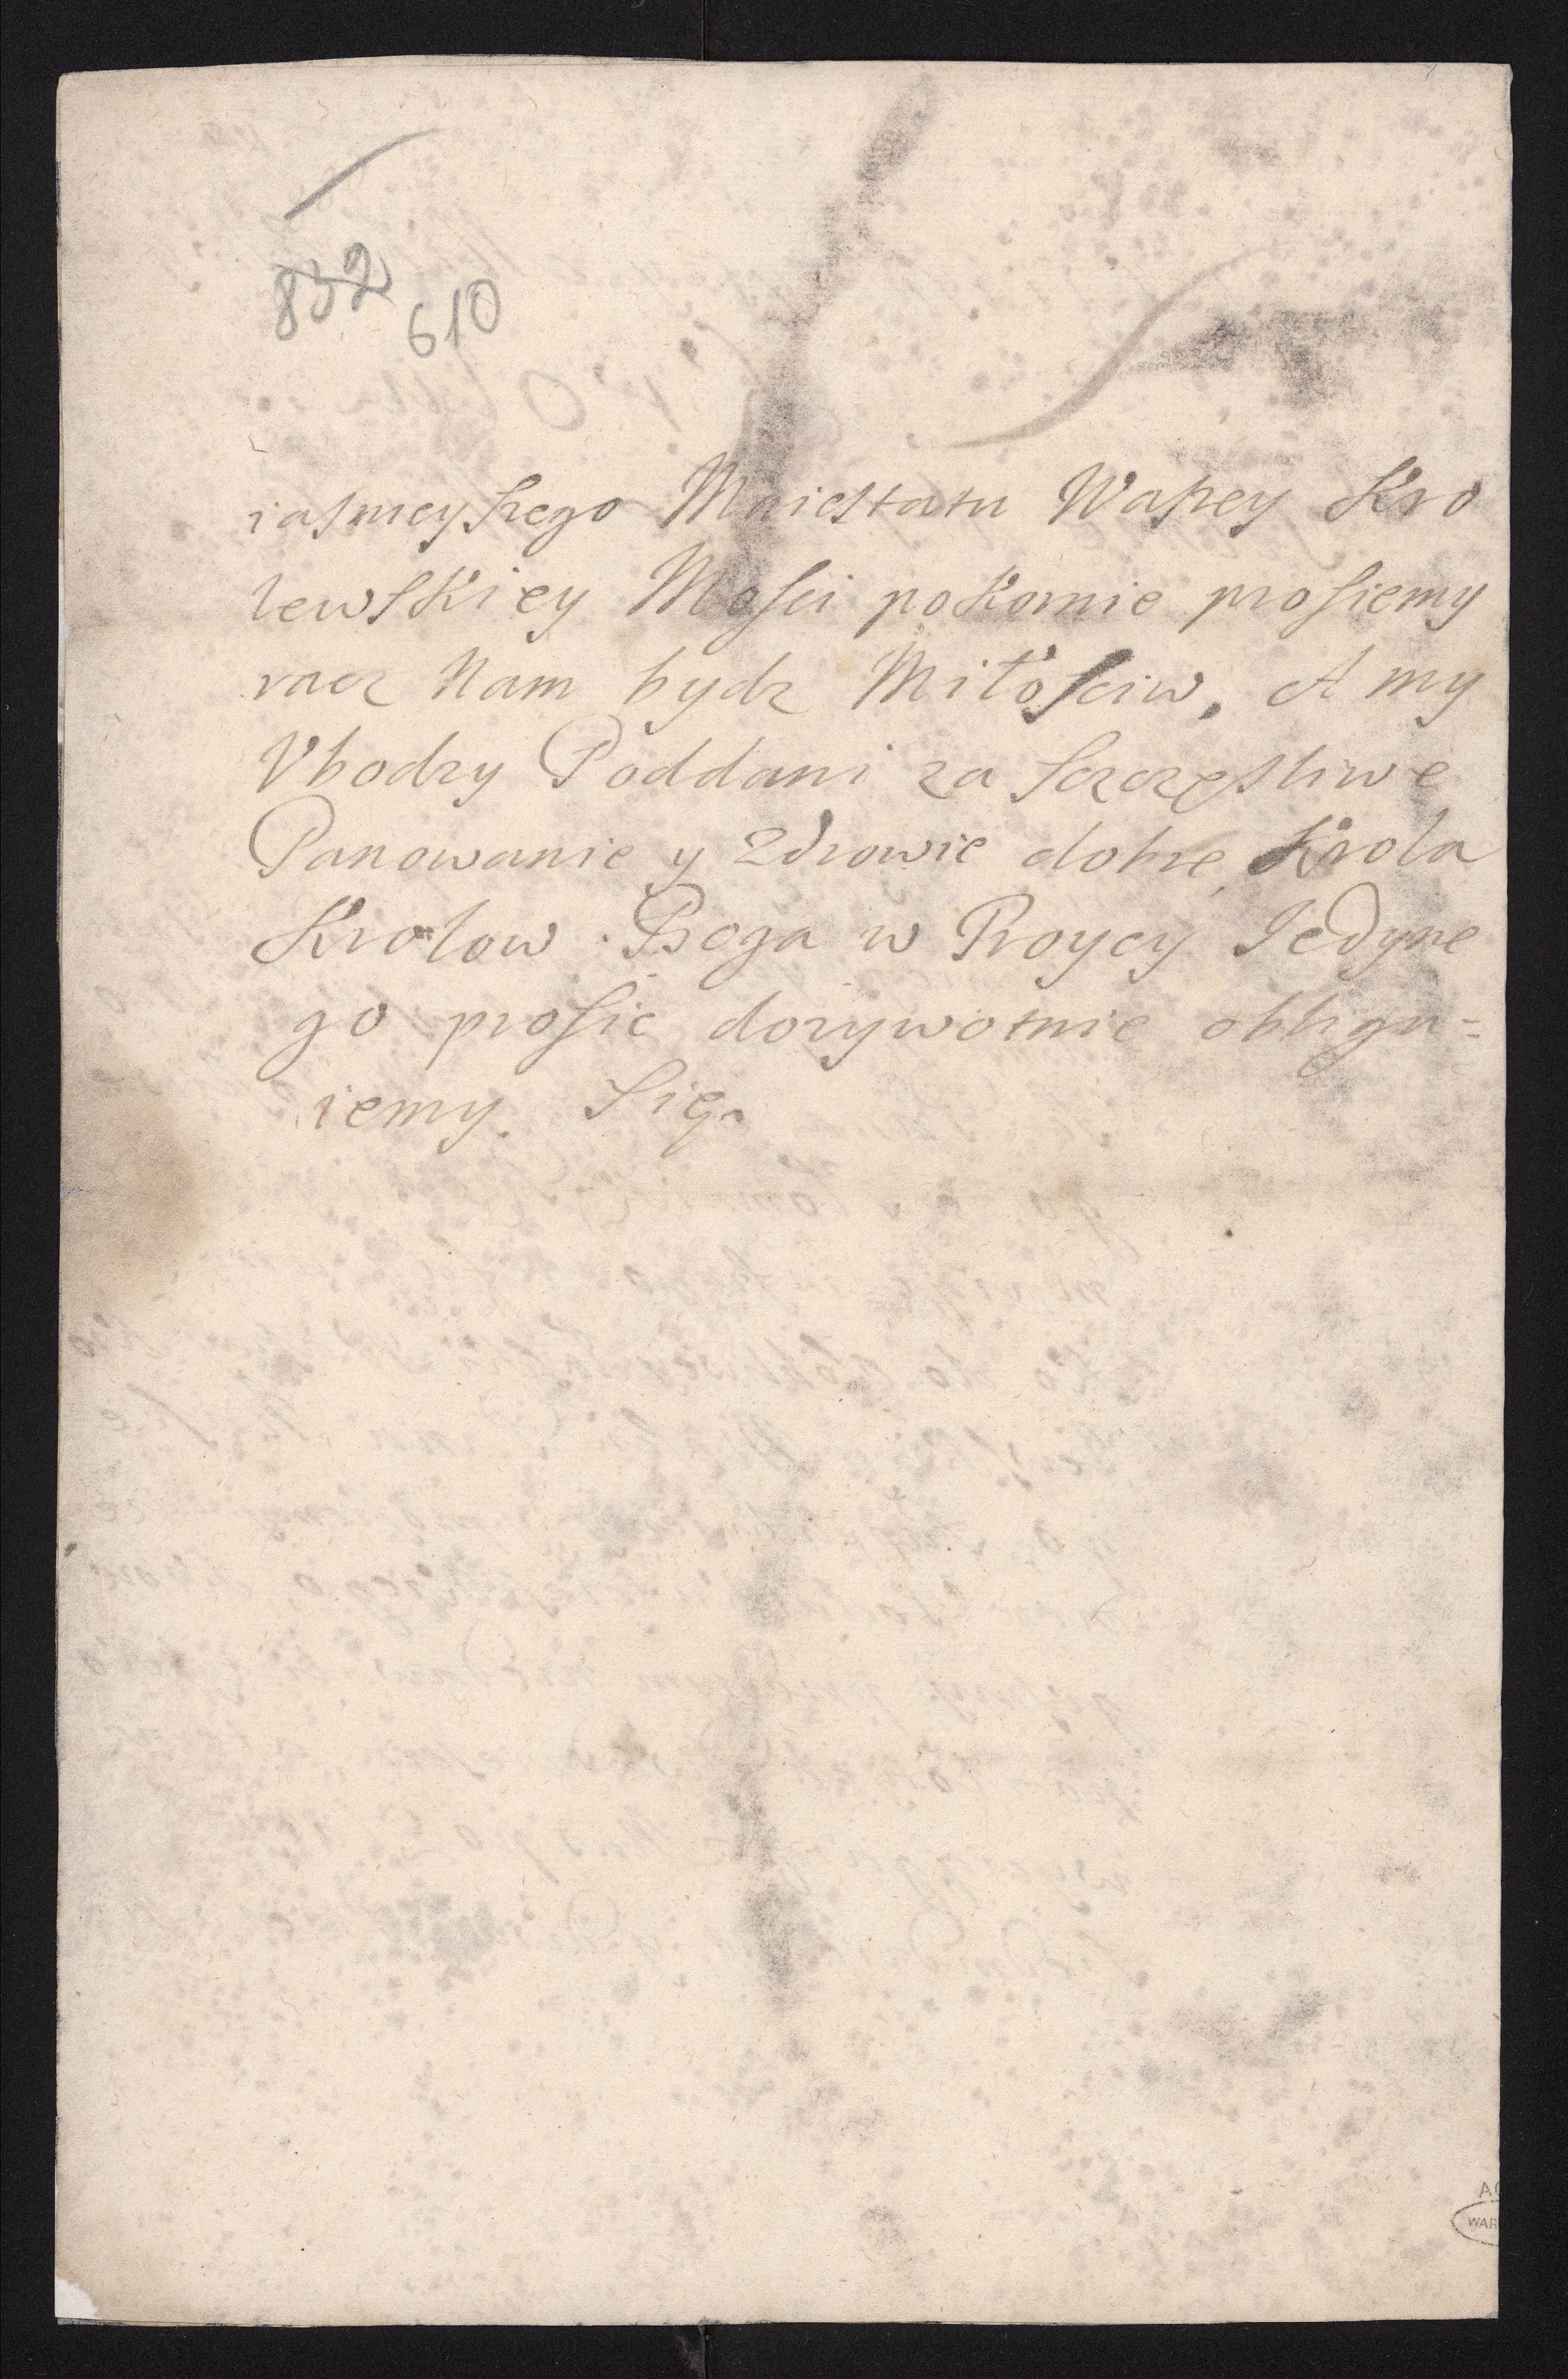 832
610
iasnieyszego Maiestatu Waszey Kro
lewskiey Mosci pokornie prosiemy
racz Nam bydz Miłosciw, A my
Vbodzy Poddani za Sczęsliwe
Panowanie y Zdrowie dobre Krola
Krolow Boga w Troycy Iedyne
go prosic dozywotnie obligu=
iemy Się.